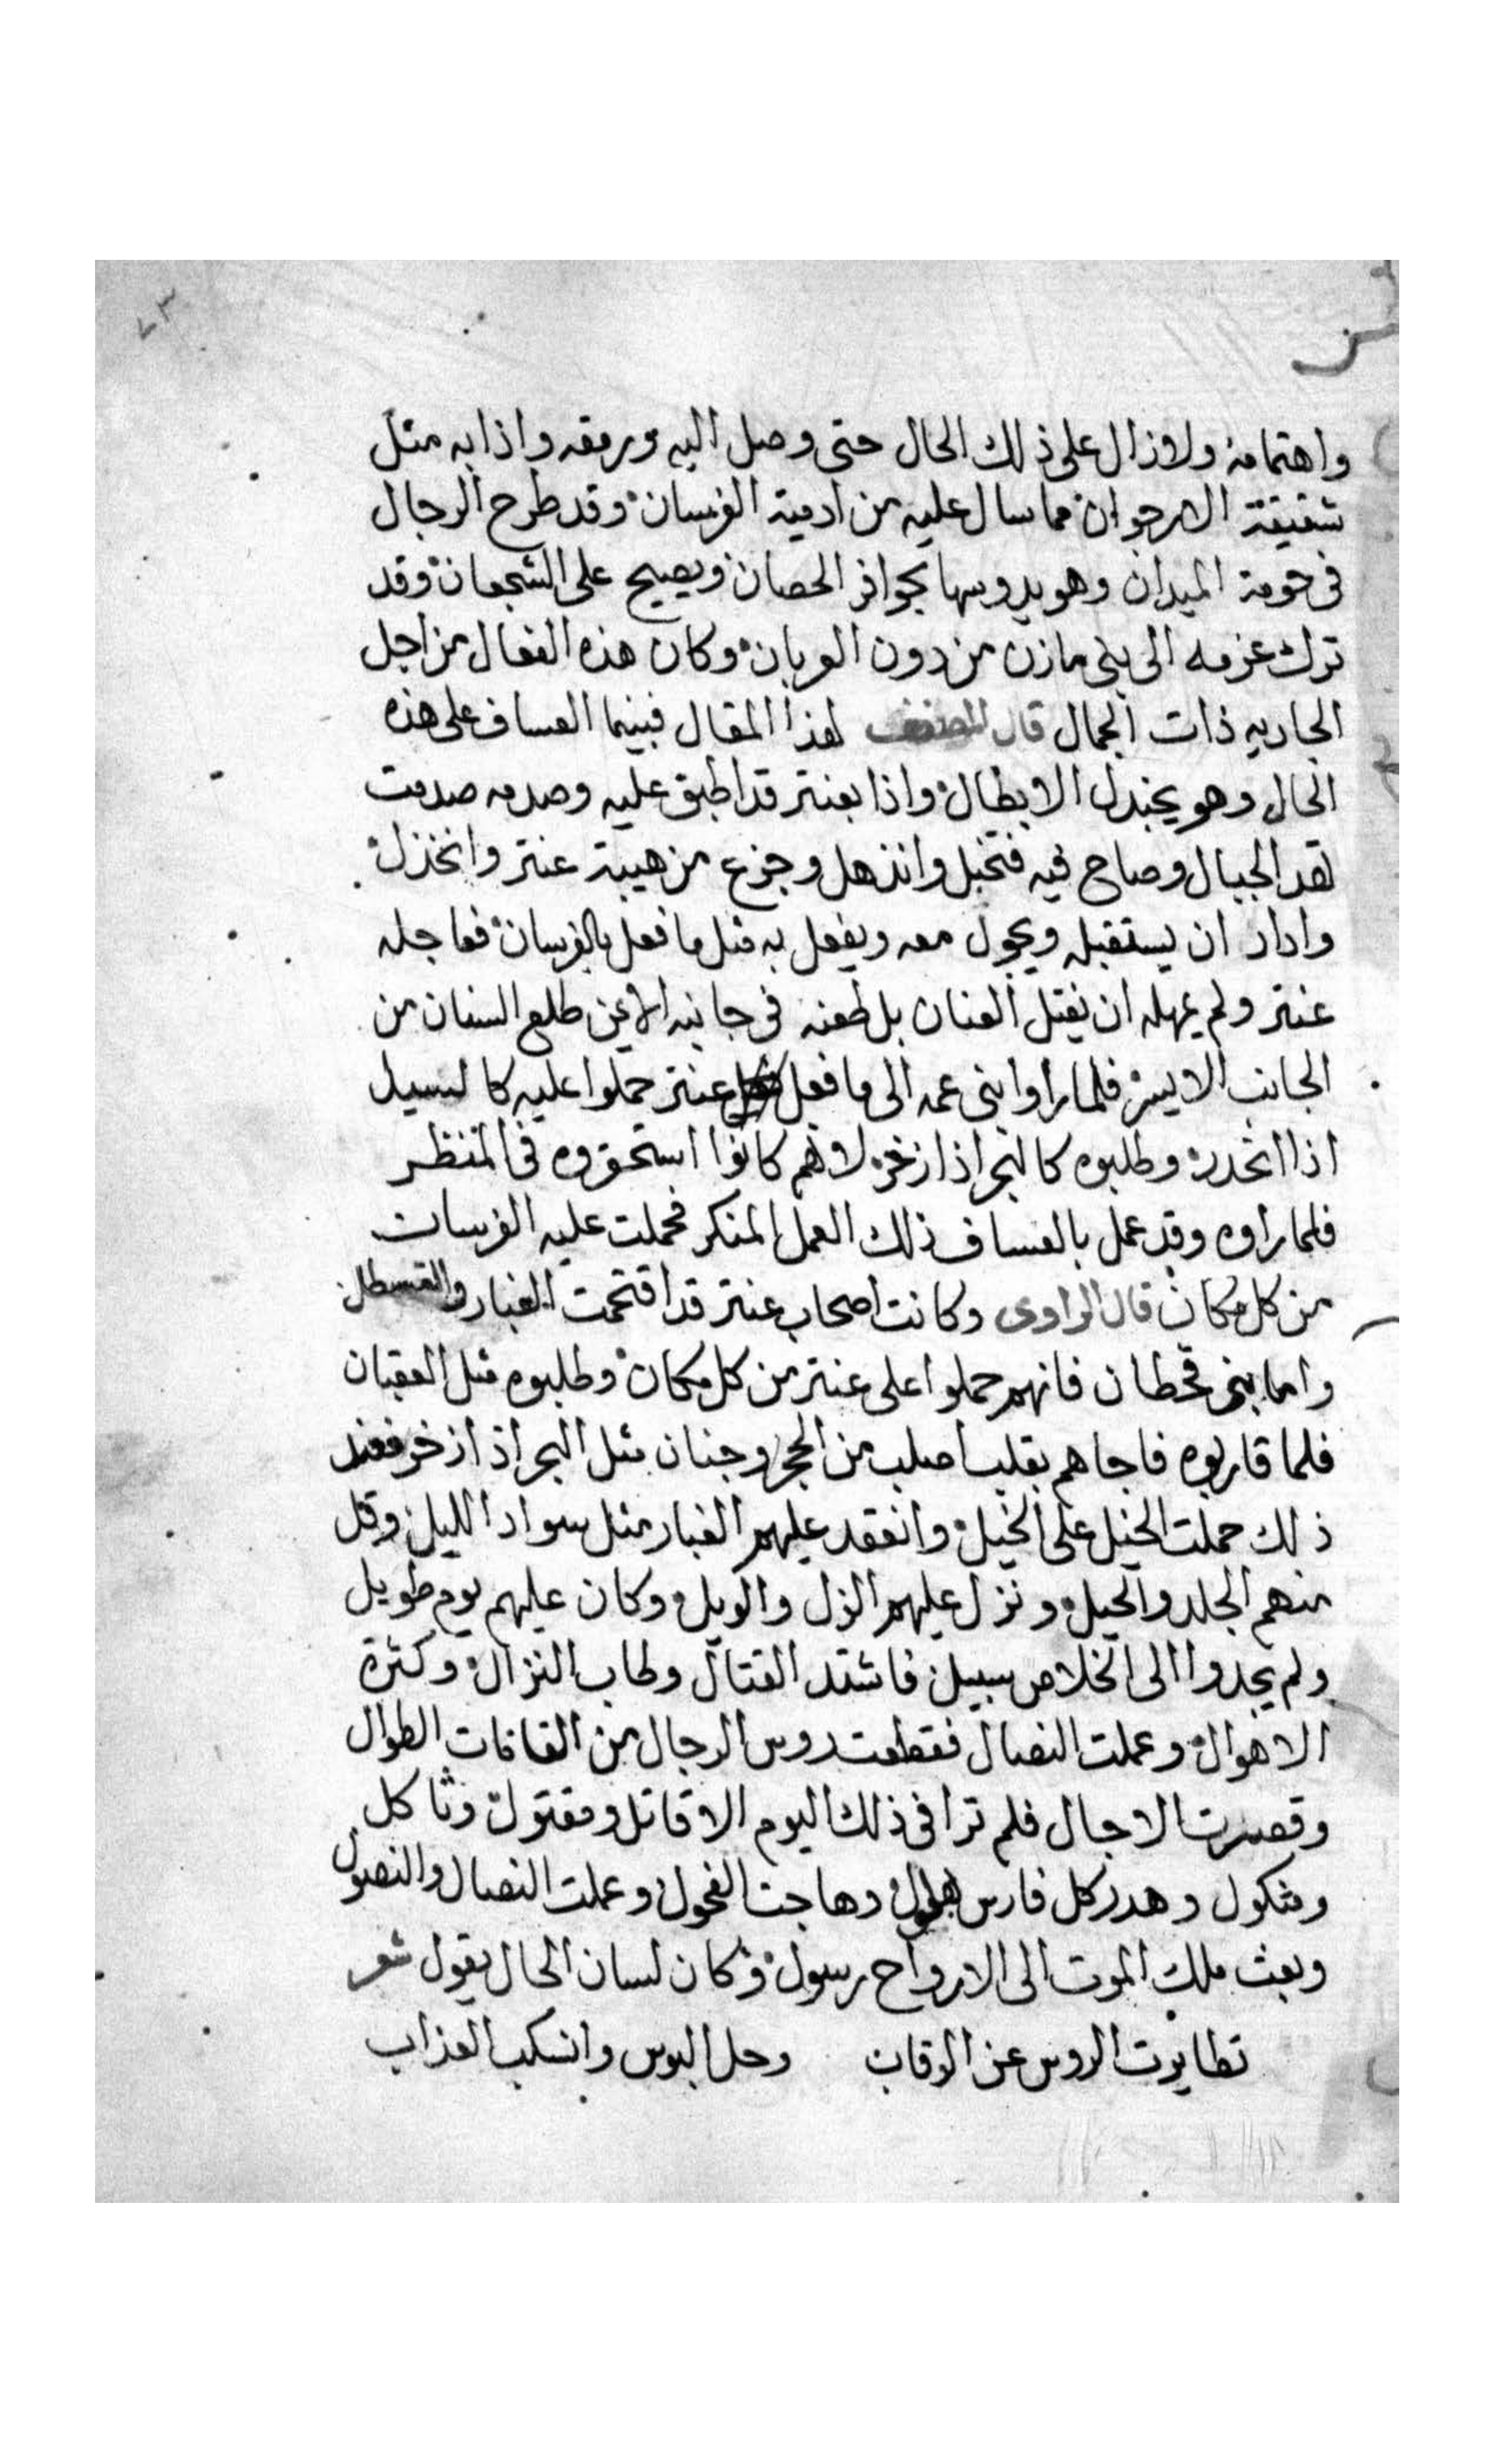 واهتمامه ولازال على ذلك الحال حتى وصل اليه ورمقه واذا به مثل
شقيقة الارجوان مما سال عليه من ادمية الفرسان وقد طرح الرجال
فى حومة الميدان وهو يدوسها بحوافر الحصان ويصيح على الشجعان وقد
ترك عزمه الى بنى مازن من دون العربان وكان هذه الفعال من اجل
الجاريه ذات الجمال قال المصنف لهذا المقال فبينما العساف على هذه
الحال وهو يجندل الابطال واذا بعنتر قد اطبق عليه وصدمه صدمت
تهد الجبال وصاح فيه فتخبل وانذهل وجزع من هيبة عنتر وانخذل
واراد ان يستقبله ويجول معه ويفعل به مثل ما فعل بالفرسان فعاجله
عنتر ولم يمهله ان يفتل العنان بل طعنه فى جانبه الايمن طلع السنان من
الجانب الايسر فلما راوا بنى عمه الى ما فعل عنتر حملوا عليه كالسيل
اذا انحدر وطلبوه كالبحر اذا زخر لانهم كانوا استحقروه فى المنظر
فلما راوه وقد عمل بالعساف ذلك العمل المنكر فحملت عليه الفرسان
من كل مكان قال الراوى وكانت اصحاب عنتر قد اقتحمت الغبار والقسطل
واما بنى قحطان فانهم حملوا على عنتر من كل مكان وطلبوه مثل العقبان
فلما قاربوه فاجاهم بقلب اصلب من الحجر وجنان مثل البحر اذا زخر فعند
ذلك حملت الخيل على الخيل وانعقد عليهم الغبار مثل سواد الليل وقل
منهم الجلد والحيل ونزل عليهم الزل والويل وكان عليهم يوم طويل
ولم يجدوا الى الخلاص سبيل فاشتد القتال وطاب النزال وكثرة
الاهوال وعملت النصال فقطعت روس الرجال من القامات الطوال
وقصرت الاجال فلم ترا فى ذلك اليوم الا قاتل ومقتول وثاكل
ومثكول وهدر كل فارس بهلول وهاجت الفحول وعملت النصال والنصول
وبعث ملك الموت الى الارواح رسول وكان لسان الحال يقول شعر
تطايرت الروس عن الرقاب وحل البوس وانسكب العذاب